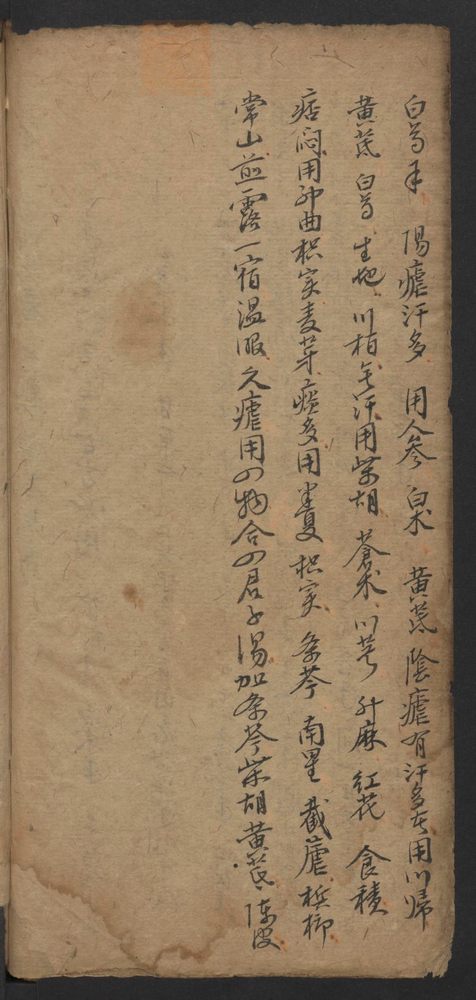 白芍 陽瘧汗多 用人參 白朮 黃芪 陰瘧有汗多 用川歸
黃芪 白芍 生地 川栢 無汗用柴胡 蒼朮 川芎 升麻 紅花 食積
痞悶用神曲枳实麦芽 痰多用半夏 枳实 条芩 南星 截瘧 梹柳
常山煎露一宿温服 久瘧用四物合四君子湯加条芩柴胡黃芪陳皮